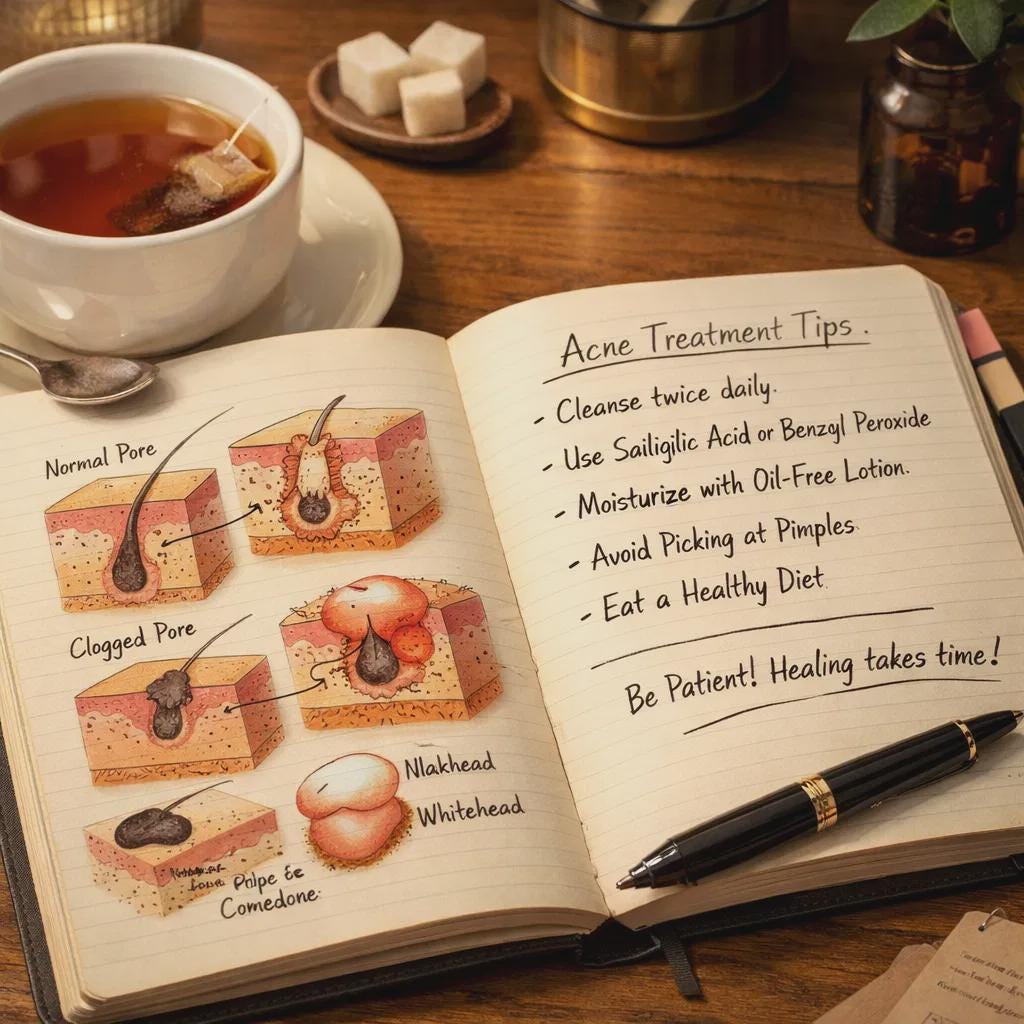 Normal Pore
Clogged Pore
Nlakhead
Whitehead
Pnlpe &
Comedone
Acne Treatment Tips.
- Cleanse twice daily.
- Use Sailigilic Acid or Benzoyl Peroxide
- Moisturize with Oil-Free Lotion.
- Avoid Picking at Pimples
- Eat a Healthy Diet
Be Patient! Healing takes time!